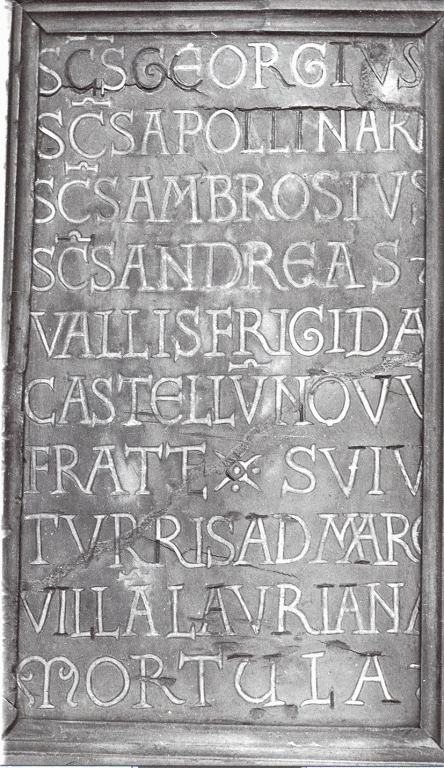 SC̄S GEORGIVS
SC̄S APOLLINAR
SC̄S AMBROSIVS
SC̄S ANDREAS
VALLIS FRIGIDA
CASTELLV̄ NOVV
FRATE SVIV
TVRRIS AD MARC
VILLA LAVRIANA
MORTULA